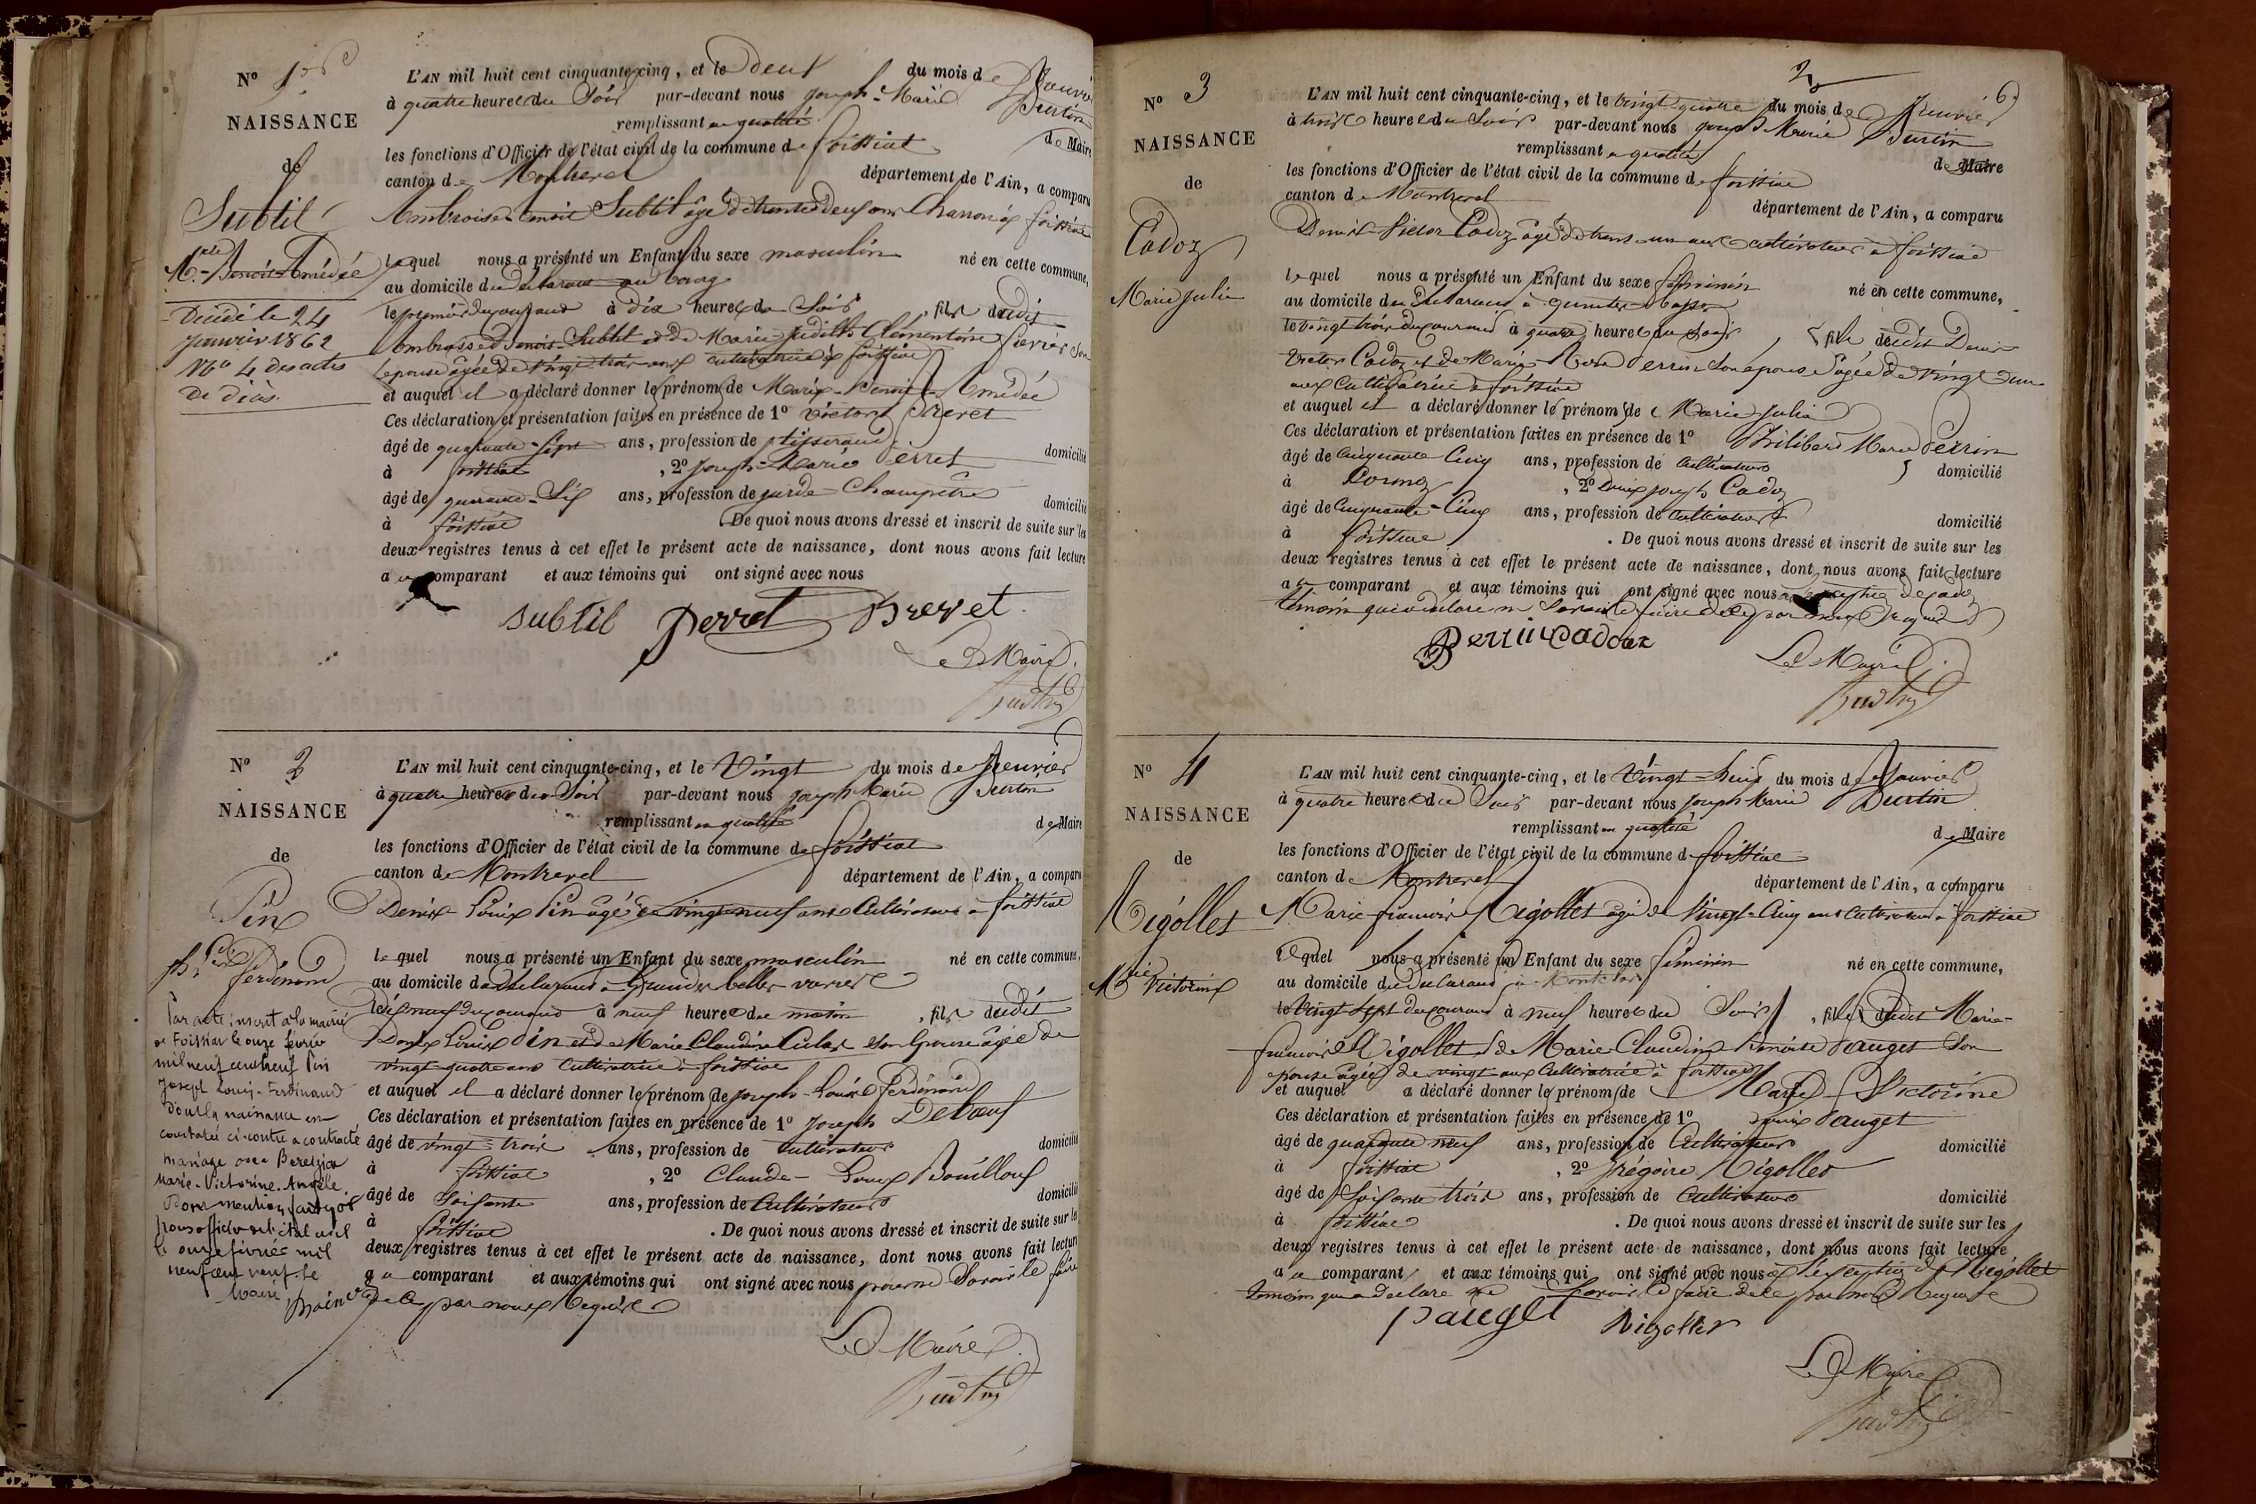 N° 1er
NAISSANCE
de
Subtil
Mie Benoit Amédée
Décédé le 24
janvier 1862
N° 4 des actes
de décès
L'AN mil huit cent cinquante-cinq, et le deux du mois de Janvier
à quatre heures du Soir par-devant nous Joseph-Marie Burtin
remplissant en qualité de Maire
les fonctions d'Officier de l'état civil de la commune de foissiat
canton de Montrevel département de l'Ain, a comparu
Ambroise Benoit Subtil âgé de trente deux ans à foissiat
lequel nous a présenté un Enfant du sexe masculin né en cette commune,
au domicile du déclarant au bourg
le premier du courant à dix heures du Soir, fils dudit
Ambroise Benoit Subtil et de Marie Judith Clémentine son
épouse âgée de vingt trois ans cultivatrice à foissiat
et auquel il a déclaré donner les prénoms de Marie-Benoit-Amédée
Ces déclaration et présentation faites en présence de 1° Victor Brevet
âgé de quarante-sept ans, profession de tisserand domicilié
à foissiat, 2° Joseph-Marie Perret
âgé de quarante-six ans, profession de garde-Champêtre domicilié
à foissiat. De quoi nous avons dressé et inscrit de suite sur les
deux registres tenus à cet effet le présent acte de naissance, dont nous avons fait lecture
au comparant et aux témoins qui ont signé avec nous
subtil Perret Brevet
Le Maire
Burtin
N° 2
NAISSANCE
de
Pin
Jph Louis
Ferdinand
Par acte inscrit à la mairie
de Foissiat le onze février
mil neuf cent neuf Pin
Joseph Louis-Ferdinand
dont la naissance est
constatée ci-contre a contracté
mariage avec Bereiziat
Marie-Victorine-Angèle.
Pour mention faite par
nous officier de l'état civil
le onze février mil
neuf cent neuf. Le
Maire
L'AN mil huit cent cinquante-cinq, et le Vingt du mois de Janvier
à quatre heures du Soir par-devant nous Joseph Marie Burtin
remplissant en qualité de Maire
les fonctions d'Officier de l'état civil de la commune de foissiat
canton de Montrevel département de l'Ain, a comparu
Denis Louis Pin âgé de vingt neuf ans Cultivateur à foissiat
lequel nous a présenté un Enfant du sexe masculin né en cette commune,
au domicile du déclarant à Grandes belles
le dix neuf du courant à neuf heures du matin, fils dudit
Denis Louis Pin et de Marie Claudine son épouse âgée de
vingt quatre ans Cultivatrice à foissiat
et auquel il a déclaré donner les prénoms de Joseph-Louis Ferdinand
Ces déclaration et présentation faites en présence de 1° Joseph Debœuf
âgé de vingt-trois ans, profession de Cultivateur domicilié
à foissiat, 2° Claude-Louis Bouilloux
âgé de Soixante ans, profession de Cultivateur domicilié
à foissiat. De quoi nous avons dressé et inscrit de suite sur les
deux registres tenus à cet effet le présent acte de naissance, dont nous avons fait lecture
au comparant et aux témoins qui ont signé avec nous pour ne Savoir le faire
de ce par nous Requis
Le Maire
Burtin
2
N° 3
NAISSANCE
de
Cadoz
Marie Julie
L'AN mil huit cent cinquante-cinq, et le Vingt quatre du mois de Janvier
à trois heures du Soir par-devant nous Joseph Marie Burtin
remplissant en qualité de Maire
les fonctions d'Officier de l'état civil de la commune de foissiat
canton de Montrevel département de l'Ain, a comparu
Denis Victor Cadoz âgé de trente un ans cultivateur à foissiat
lequel nous a présenté un Enfant du sexe féminin né en cette commune,
au domicile du Déclarant à
le Vingt trois du courant à quatre heures du Soir, fille dudit Denis
Victor Cadoz et de Marie-Rose Perrin son épouse âgée de vingt deux
ans Cultivatrice à foissiat
et auquel il a déclaré donner les prénoms de Marie Julie
Ces déclaration et présentation faites en présence de 1° Philibert Marie Perrin
âgé de Cinquante Cinq ans, profession de Cultivateur domicilié
à Cormoz, 2° Denis Joseph Cadoz
âgé de Cinquante-Cinq ans, profession de Cultivateur domicilié
à foissiat. De quoi nous avons dressé et inscrit de suite sur les
deux registres tenus à cet effet le présent acte de naissance, dont nous avons fait lecture
au comparant et aux témoins qui ont signé avec nous à l'exception de Cadoz
témoin qui a déclaré ne Savoir le faire de ce par nous Requis
Perrin Cadoz
Le Maire
Burtin
N° 4
NAISSANCE
de
Rigollet
Mie Victorine
L'AN mil huit cent cinquante-cinq, et le Vingt-huit du mois de Janvier
à quatre heures du Soir par-devant nous Joseph Marie Burtin
remplissant en qualité de Maire
les fonctions d'Officier de l'état civil de la commune de foissiat
canton de Montrevel département de l'Ain, a comparu
Marie françois Rigollet âgé de Vingt-Cinq ans Cultivateur à foissiat
lequel nous a présenté un Enfant du sexe féminin né en cette commune,
au domicile du Déclarant à
le Vingt Sept du courant à neuf heures du Soir, fille dudit Marie-
françois Rigollet et de Marie Claudine Benoite Pauget son
épouse âgée de vingt ans Cultivatrice à foissiat
et auquel a déclaré donner les prénoms de Marie Victorine
Ces déclaration et présentation faites en présence de 1° Denis Pauget
âgé de quarante neuf ans, profession de Cultivateur domicilié
à foissiat, 2° Grégoire Rigollet
âgé de Soixante trois ans, profession de Cultivateur domicilié
à foissiat. De quoi nous avons dressé et inscrit de suite sur les
deux registres tenus à cet effet le présent acte de naissance, dont nous avons fait lecture
au comparant et aux témoins qui ont signé avec nous à l'exception de Rigollet
témoin qui a déclaré ne Savoir le faire de ce par nous Requis
Pauget Rigollet
Le Maire
Burtin